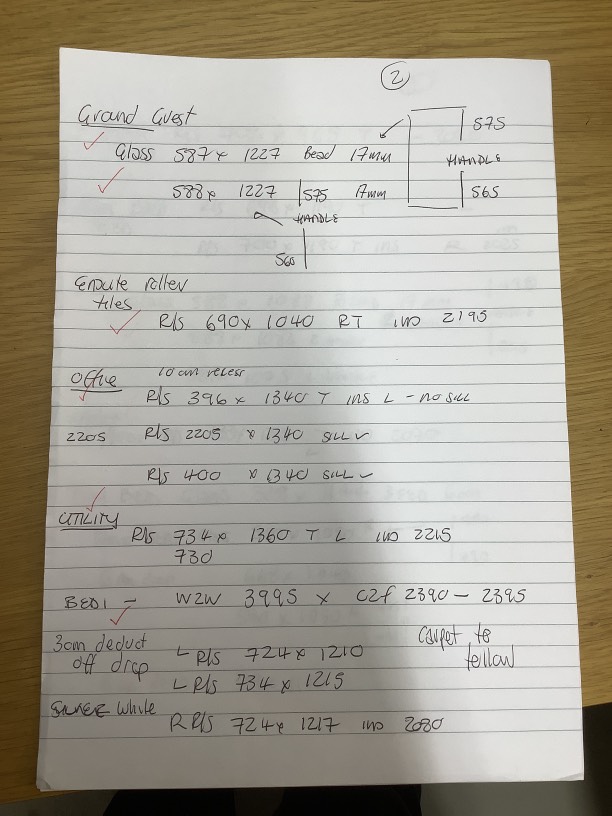 2
Ground Guest
Glass 587 x 1227 Bead 17mm
575
HANDLE
565
588 x 1227 575 17mm
HANDLE
560
roller
tiles
R/s 690 x 1040 RT 2195
Office 10cm recess
R/s 396 x 1340 T ins L - no sill
2205 R/s 2205 x 1340 sill ✓
R/s 400 x 1340 sill ✓
UTILITY
R/s 734 x 1360 T L 2215
730
BED1 - W2W 3995 x C2f 2390 - 2395
3cm deduct
off drop
L R/s 724 x 1210
carpet to
follow
L R/s 734 x 1215
white
R R/s 724 x 1217 2080